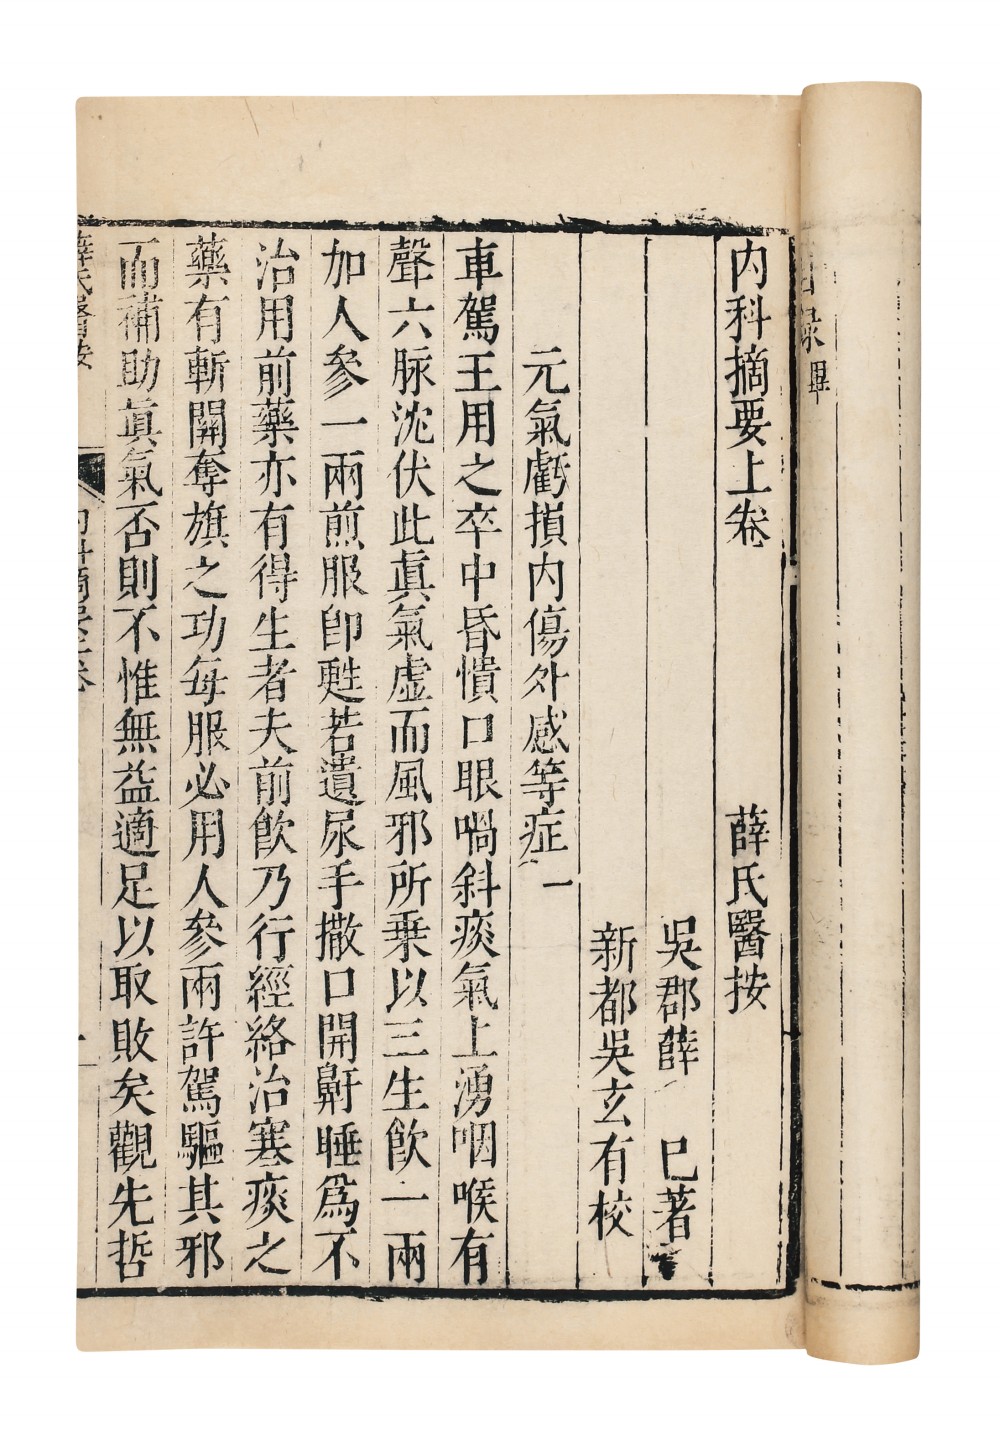 目錄畢
內科摘要上卷 薛氏醫按
吳郡薛 已著
新都吳玄有校
元氣虧損內傷外感等症一
車駕王用之卒中昏憒口眼喎斜痰氣上湧咽喉有
聲六脉沈伏此眞氣虛而風邪所乗以三生飲一兩
加人參一兩煎服卽甦若遺尿手撒口開鼾睡爲不
治用前藥亦有得生者夫前飲乃行經絡治寒痰之
藥有斬關奪旗之功每服必用人參兩許駕驅其邪
而補助眞氣否則不惟無益適足以取敗矣觀先哲
薛氏醫按 內科摘要上卷 一